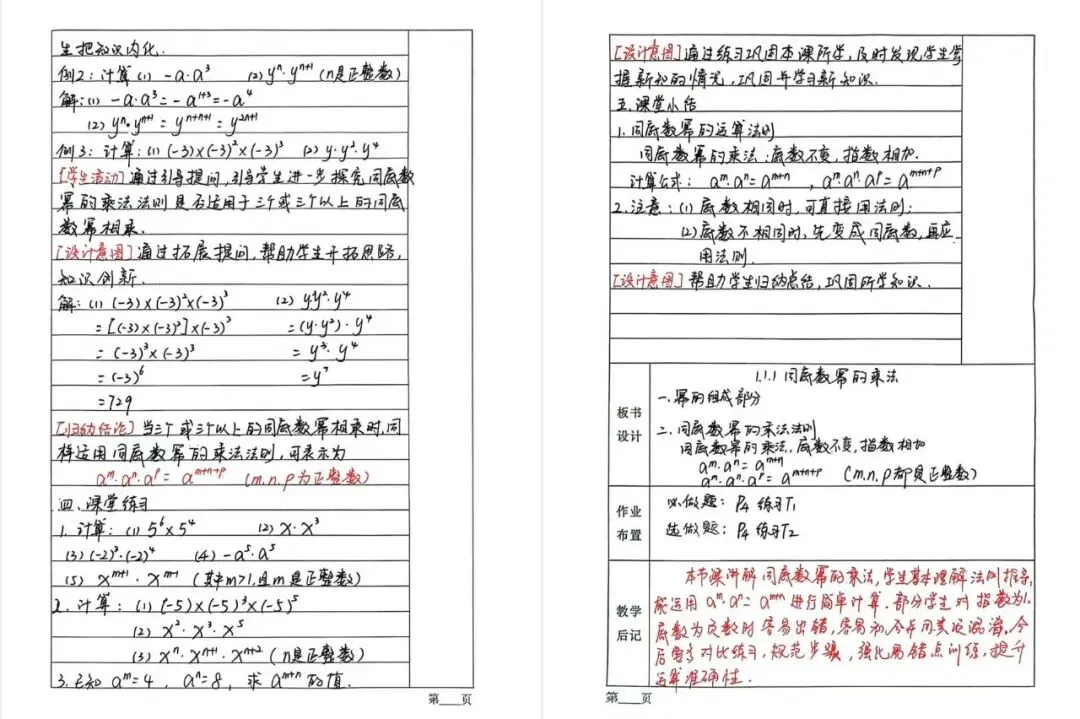 生把知识内化.
例2：计算 (1) -a·a³ (2) yⁿ·yⁿ⁺¹ (n是正整数)
解：(1) -a·a³ = -a¹⁺³ = -a⁴
(2) yⁿ·yⁿ⁺¹ = yⁿ⁺ⁿ⁺¹ = y²ⁿ⁺¹
例3：计算：(1) (-3)×(-3)²×(-3)³ (2) y·y²·y⁴
[学生活动] 通过引导提问，引导学生进一步探究同底数
幂的乘法法则是否适用于三个或三个以上的同底
数幂相乘.
[设计意图] 通过拓展提问，帮助学生开拓思路，
知识创新.
解：(1) (-3)×(-3)²×(-3)³ (2) y·y²·y⁴
= [(-3)×(-3)²]×(-3)³ = (y·y²)·y⁴
= (-3)³×(-3)³ = y³·y⁴
= (-3)⁶ = y⁷
= 729
[归纳结论] 当三个或三个以上的同底数幂相乘时，同
样运用同底数幂的乘法法则，可表示为
aᵐ·aⁿ·aᵖ = aᵐ⁺ⁿ⁺ᵖ (m.n.p为正整数)
四、课堂练习
1. 计算：(1) 5⁶×5⁴ (2) x·x³
(3) (-2)³·(-2)⁴ (4) -a⁵·a⁵
(5) xᵐ⁺¹·xᵐ⁻¹ (其中m>1,且m是正整数)
2. 计算：(1) (-5)×(-5)³×(-5)⁵
(2) x²·x³·x⁵
(3) xⁿ·xⁿ⁺¹·xⁿ⁺² (n是正整数)
3. 已知 aᵐ=4，aⁿ=8，求 aᵐ⁺ⁿ 的值.
第 页
[设计意图] 通过练习巩固本课所学，及时发现学生掌
握新知的情况，巩固并学习新知识.
五.课堂小结
1. 同底数幂的运算法则
同底数幂的乘法：底数不变，指数相加.
计算公式：aᵐ·aⁿ=aᵐ⁺ⁿ，aᵐ·aⁿ·aᵖ=aᵐ⁺ⁿ⁺ᵖ
2. 注意：(1) 底数相同时，可直接用法则；
(2) 底数不相同时，先变成同底数，再应
用法则.
[设计意图] 帮助学生归纳总结，巩固所学知识.
板书
设计
1.1.1 同底数幂的乘法
一.幂的组成部分
二.同底数幂的乘法法则
同底数幂的乘法，底数不变，指数相加
aᵐ·aⁿ=aᵐ⁺ⁿ
aᵐ·aⁿ·aᵖ=aᵐ⁺ⁿ⁺ᵖ (m.n.p都是正整数)
作业
布置
必做题：P₄ 练习T₁
选做题：P₄ 练习T₂
教学
后记
本节课讲解同底数幂的乘法，学生基本理解法则推导，
能运用 aᵐ·aⁿ=aᵐ⁺ⁿ 进行简单计算.部分学生对指数为1.
底数为负数时容易出错，容易和合并同类项混淆.今
后要多对比练习，规范步骤，强化易错点训练，提升
运算准确性.
第 页